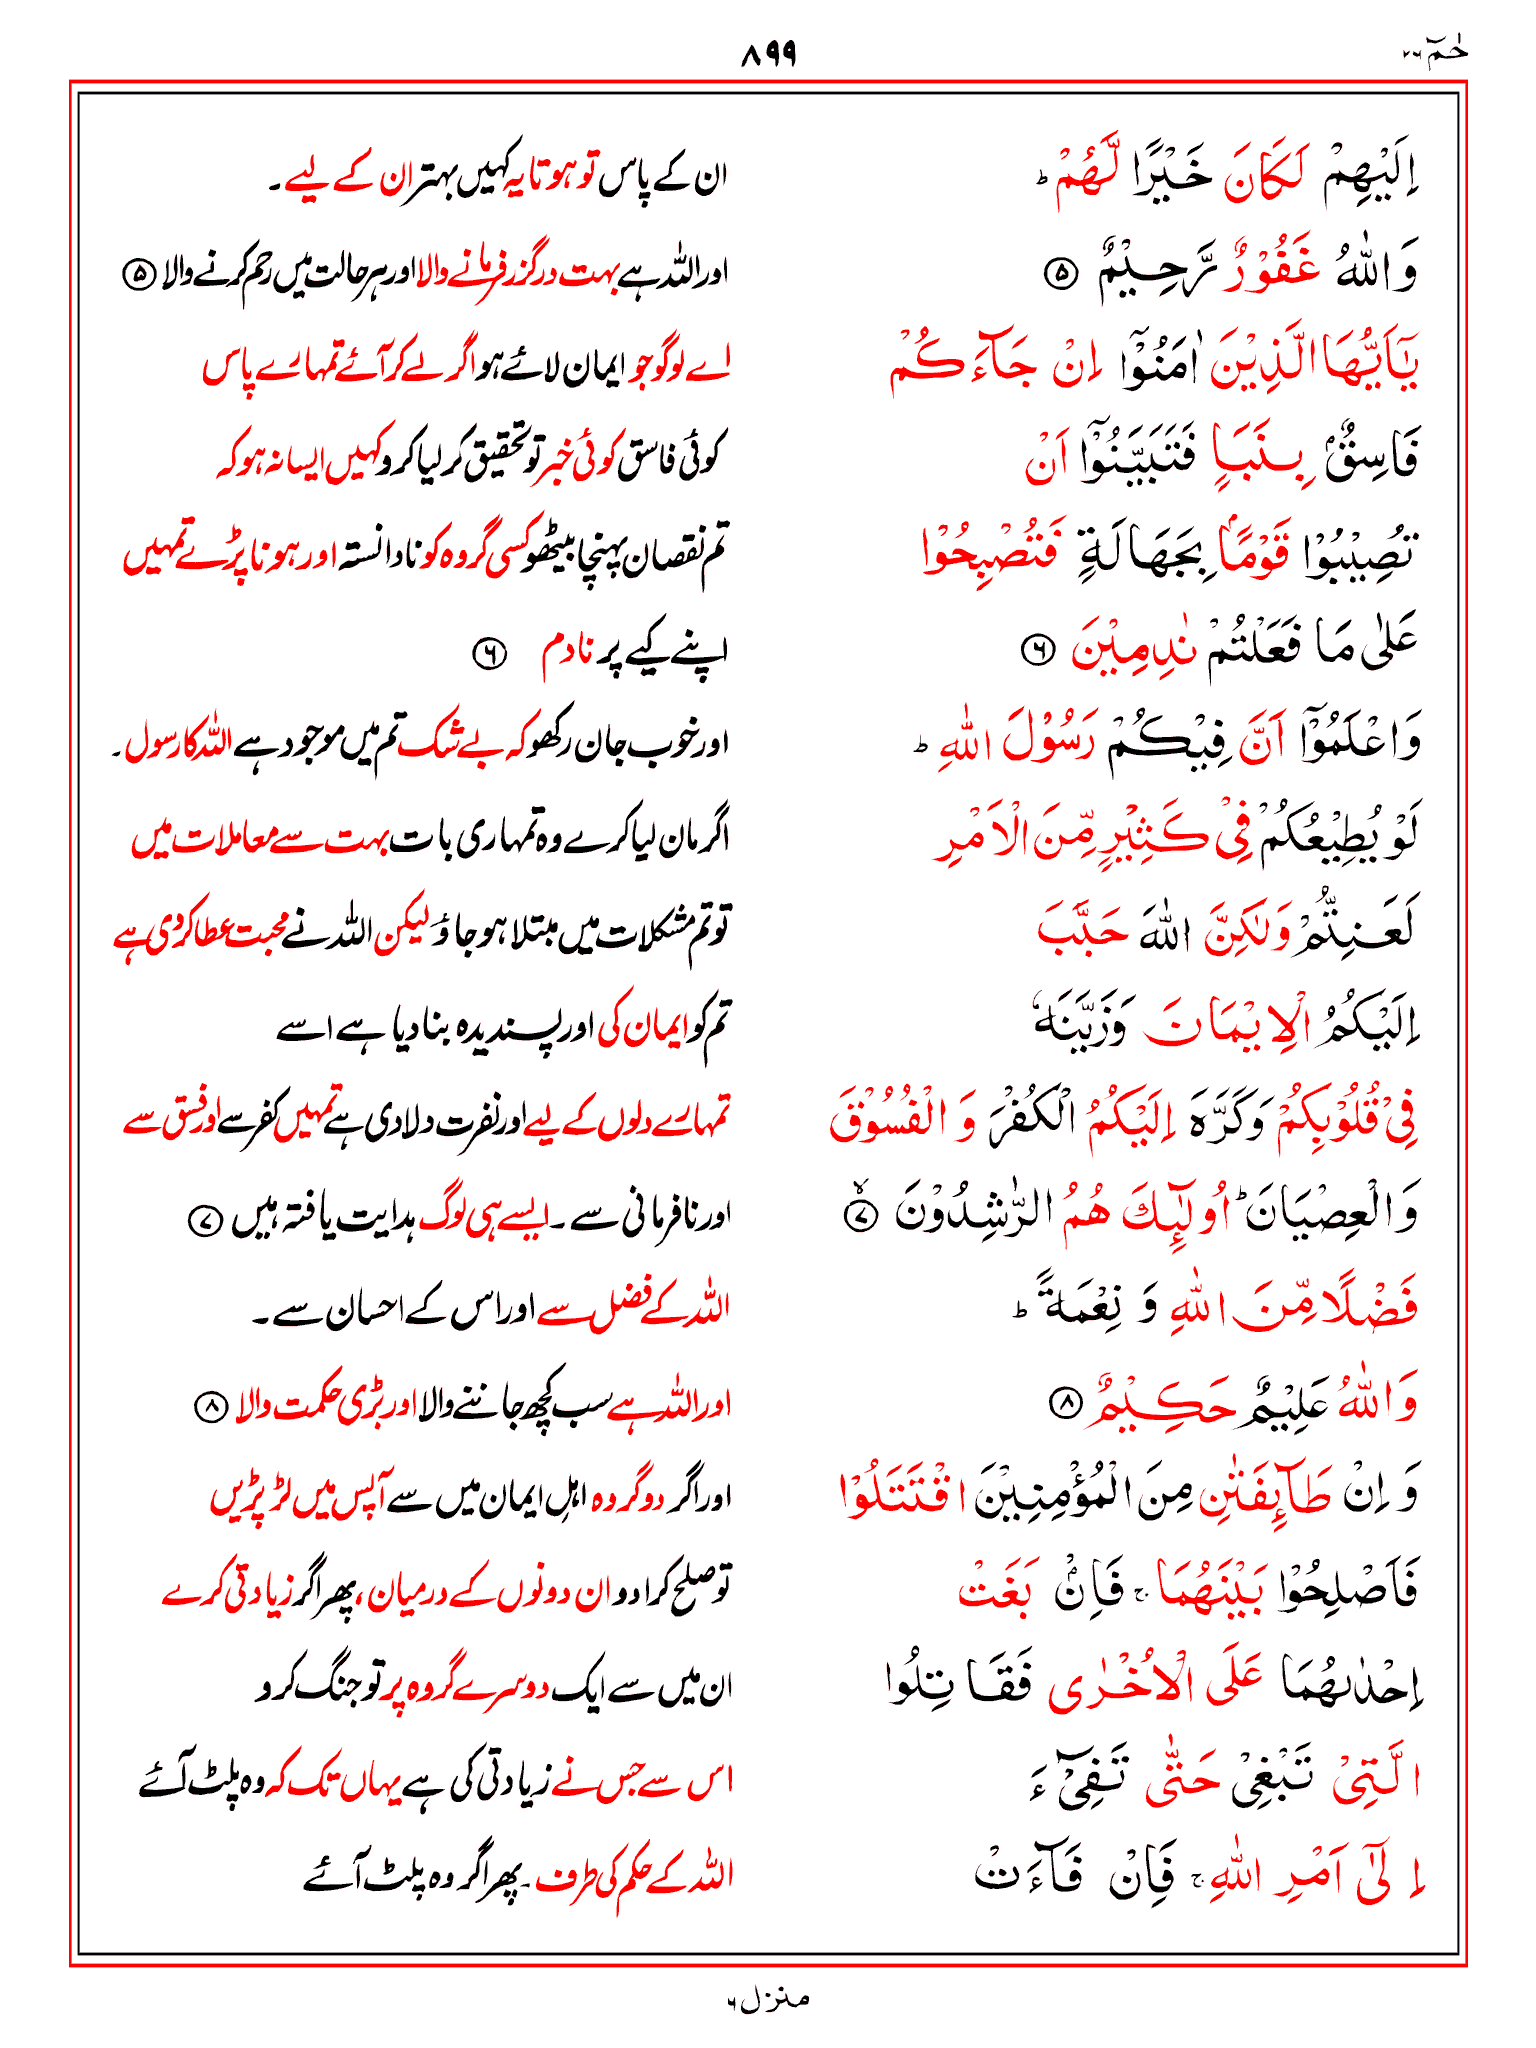 حٰمٓ ۲۶
۸۹۹
اِلَيْهِمْ لَكَانَ خَيْرًا لَّهُمْ ؕ
ان کے پاس تو ہوتا یہ کہیں بہتر ان کے لیے۔
وَاللّٰهُ غَفُوْرٌ رَّحِيْمٌ ۵
اور اللہ ہے بہت درگزر فرمانے والا اور ہر حالت میں رحم کرنے والا ۵
يٰۤاَيُّهَا الَّذِيْنَ اٰمَنُوْۤا اِنْ جَآءَكُمْ
اے لوگو جو ایمان لائے ہو اگر لے کر آئے تمہارے پاس
فَاسِقٌۢ بِنَبَاٍ فَتَبَيَّنُوْۤا اَنْ
کوئی فاسق کوئی خبر تو تحقیق کر لیا کرو کہیں ایسا نہ ہو کہ
تُصِيْبُوْا قَوْمًۢا بِجَهَالَةٍ فَتُصْبِحُوْا
تم نقصان پہنچا بیٹھو کسی گروہ کو نادانستہ اور ہونا پڑے تمہیں
عَلٰى مَا فَعَلْتُمْ نٰدِمِيْنَ ۶
اپنے کیے پر نادم ۶
وَاعْلَمُوْۤا اَنَّ فِيْكُمْ رَسُوْلَ اللّٰهِ ؕ
اور خوب جان رکھو کہ بے شک تم میں موجود ہے اللہ کا رسول۔
لَوْ يُطِيْعُكُمْ فِيْ كَثِيْرٍ مِّنَ الْاَمْرِ
اگر مان لیا کرے وہ تمہاری بات بہت سے معاملات میں
لَعَنِتُّمْ وَلٰكِنَّ اللّٰهَ حَبَّبَ
تو تم مشکلات میں مبتلا ہو جاؤ لیکن اللہ نے محبت عطا کر دی ہے
اِلَيْكُمُ الْاِيْمَانَ وَزَيَّنَهٗ
تم کو ایمان کی اور پسندیدہ بنا دیا ہے اسے
فِيْ قُلُوْبِكُمْ وَكَرَّهَ اِلَيْكُمُ الْكُفْرَ وَ الْفُسُوْقَ
تمہارے دلوں کے لیے اور نفرت دلا دی ہے تمہیں کفر سے اور فسق سے
وَالْعِصْيَانَ ؕ اُولٰٓئِكَ هُمُ الرّٰشِدُوْنَ ۙ ۷
اور نافرمانی سے ۔ ایسے ہی لوگ ہدایت یافتہ ہیں ۷
فَضْلًا مِّنَ اللّٰهِ وَ نِعْمَةً ؕ
اللہ کے فضل سے اور اس کے احسان سے۔
وَاللّٰهُ عَلِيْمٌ حَكِيْمٌ ۸
اور اللہ ہے سب کچھ جاننے والا اور بڑی حکمت والا ۸
وَ اِنْ طَآئِفَتٰنِ مِنَ الْمُؤْمِنِيْنَ اقْتَتَلُوْا
اور اگر دو گروہ اہلِ ایمان میں سے آپس میں لڑ پڑیں
فَاَصْلِحُوْا بَيْنَهُمَا ۚ فَاِنْۢ بَغَتْ
تو صلح کرا دو ان دونوں کے درمیان، پھر اگر زیادتی کرے
اِحْدٰىهُمَا عَلَى الْاُخْرٰى فَقَاتِلُوا
ان میں سے ایک دوسرے گروہ پر تو جنگ کرو
الَّتِيْ تَبْغِيْ حَتّٰى تَفِيْٓءَ
اس سے جس نے زیادتی کی ہے یہاں تک کہ وہ پلٹ آئے
اِلٰٓى اَمْرِ اللّٰهِ ۚ فَاِنْ فَآءَتْ
اللہ کے حکم کی طرف۔ پھر اگر وہ پلٹ آئے
منزل ۶